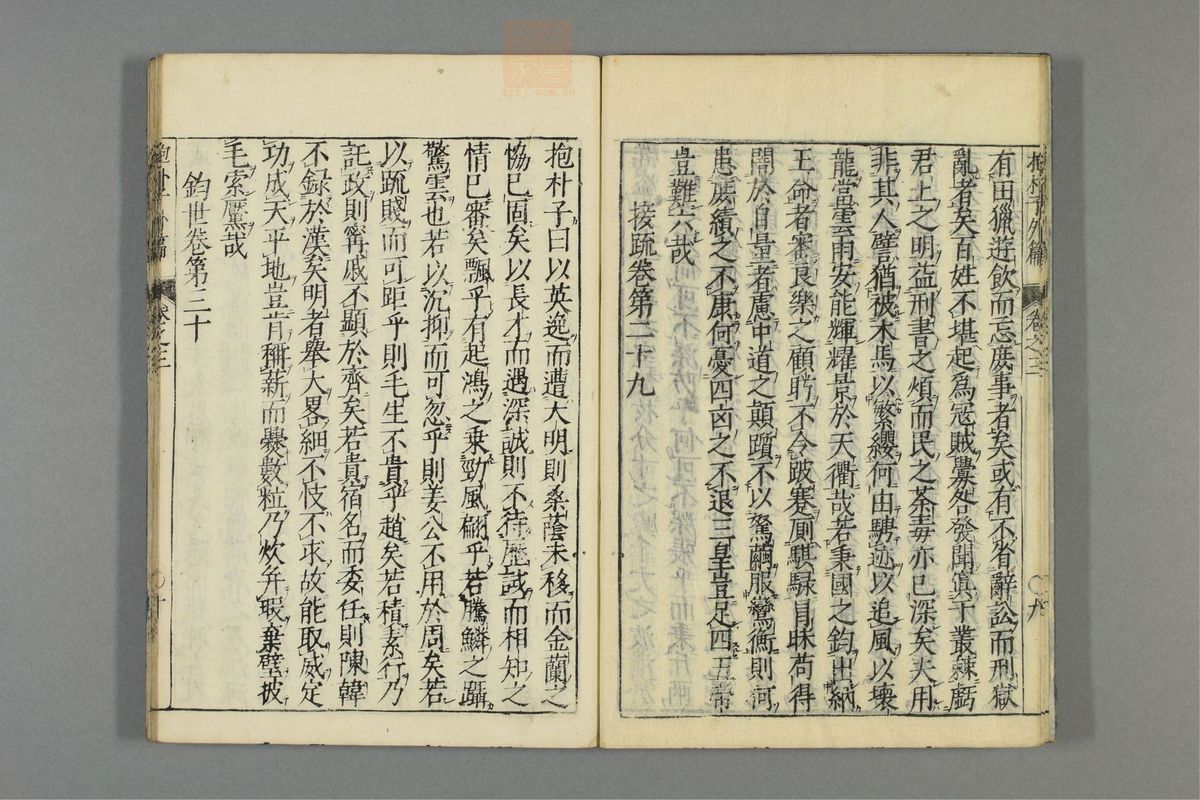 有田獵遊飲而忘庶事者矣或有不省辭訟而刑獄
亂者矣百姓不堪起為寇賊釁咎發聞真于叢棘虧
君上之明益刑書之煩而民之荼毒亦已深矣夫用
非其人譬猶被木馬以繁纓何由騁迹以追風以壞
龍當雲雨安能輝耀景於天衢哉若秉國之鈞出納
王命者審良樂之顧眄不令跛蹇厠騏騄冒昧苟得
闇於自量者慮中道之顛躓不以駑繭服鸞衡則何
患庶績之不康何憂四凶之不退三皇豈足四五帝
豈難六哉
接疏卷第二十九
抱朴子曰以英逸而遭大明則桑蔭未移而金蘭之
恊已固矣以長才而遇深識則不待歷試而相知之
情已審矣飄乎有起鴻之乗勁風翩乎若騰鱗之躡
驚雲也若以沉抑而可忽乎則姜公不用於周矣若
以疏賤而可距乎則毛生不貴乎趙矣若積素行乃
託政則甯戚不顯於齊矣若貴宿名而委任則陳韓
不録於漢矣明者舉大畧細不忮不求故能取威定
功成天平地豈肯稱薪而爨數粒乃炊弁瑕棄璧披
毛索黶哉
鈞世卷第三十
抱朴子外篇
卷之三
九
卷之三
十